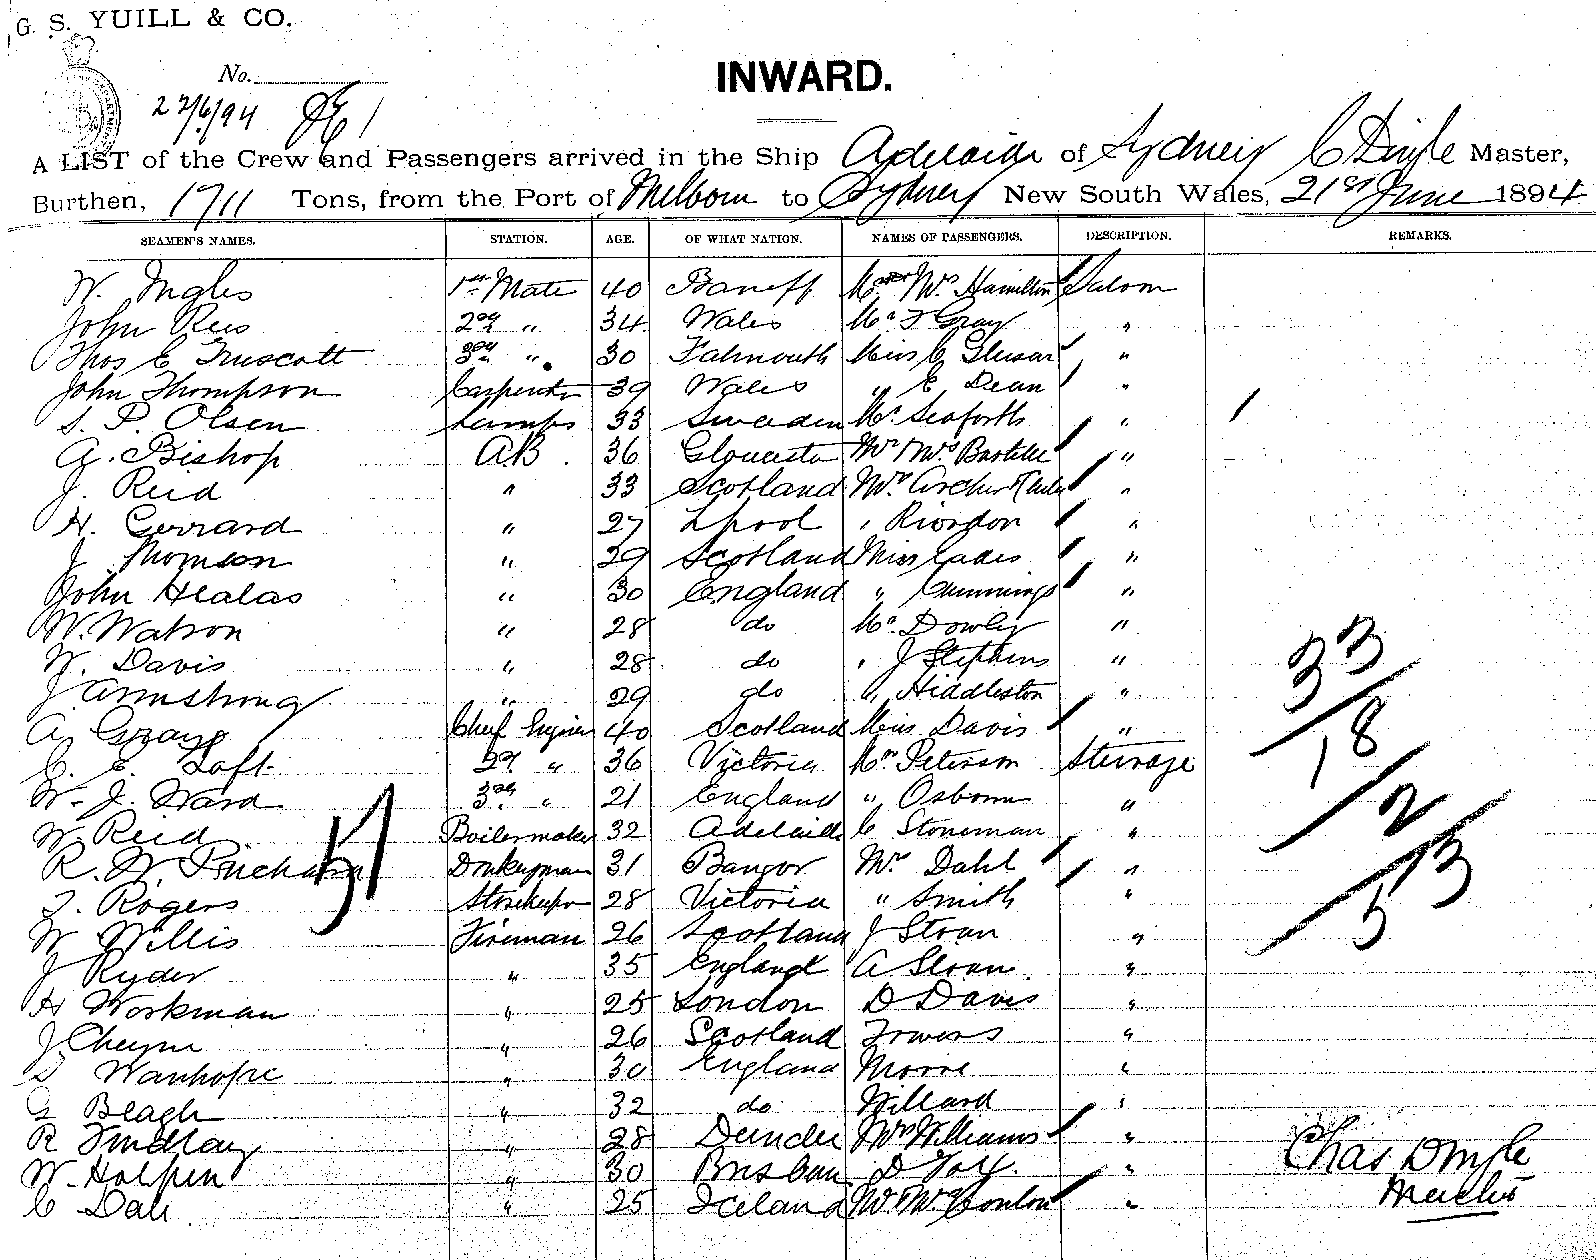 G. S. YUILL & CO.
No.
22/6/94
INWARD.
A LIST of the Crew and Passengers arrived in the Ship Adelaide of Sydney C Dingle Master,
Burthen, 1711 Tons, from the Port of Melborn to Sydney New South Wales, 21st June 1894
SEAMEN'S NAMES. STATION. AGE. OF WHAT NATION. NAMES OF PASSENGERS. DESCRIPTION. REMARKS.
W. Ingles 1st Mate 40 Banff Mr Mrs Hamilton Saloon
John Rees 2nd " 34 Wales Mr F Gray "
Thos C Truscott 3rd " 30 Falmouth Miss C "
John Thompson Carpenter 39 Wales " E Dean "
S. P. Olsen Lamps 33 Sweeden Mr Seaforth "
A. Bishop AB 36 Gloucester Mr Mrs "
J. Reid " 33 Scotland Mrs Archer "
H. Gerrard " 27 Lpool " Riordon "
J. Thomson " 29 Scotland Miss Eades "
John Healas " 30 England " Cummings "
W. Watson " 28 do Mr Dowley "
W. Davis " 28 do " J Stephens "
J Armstrong " 29 do " Hiddleston "
A. Gray Chief Engineer 40 Scotland Miss Davis "
C. E. Taft 2nd " 36 Victoria Mr Peterson Steerage
W. J. Ward 3rd " 21 England " Osborn "
W. Reid Boilermaker 32 Adelaide C Stoneman "
R. W. Donkeyman 31 Bangor Mrs Dahl "
T. Rogers Storekeeper 28 Victoria " Smith "
W Willis Fireman 26 Scotland J Sloan "
J Ryder " 35 England A Sloan "
H Workman " 25 London D Davis "
J. Cheyne " 26 Scotland Towers "
Wanhope " 30 England Moore "
G Beagh " 32 do Willard "
R Findlay " 28 Dundee Mrs Williams "
W. Halpen " 30 Brisban D "
C Dale " 25 Iceland Mr Mrs Conlon "
57
33
18
2
53
Chas Dingle
Master